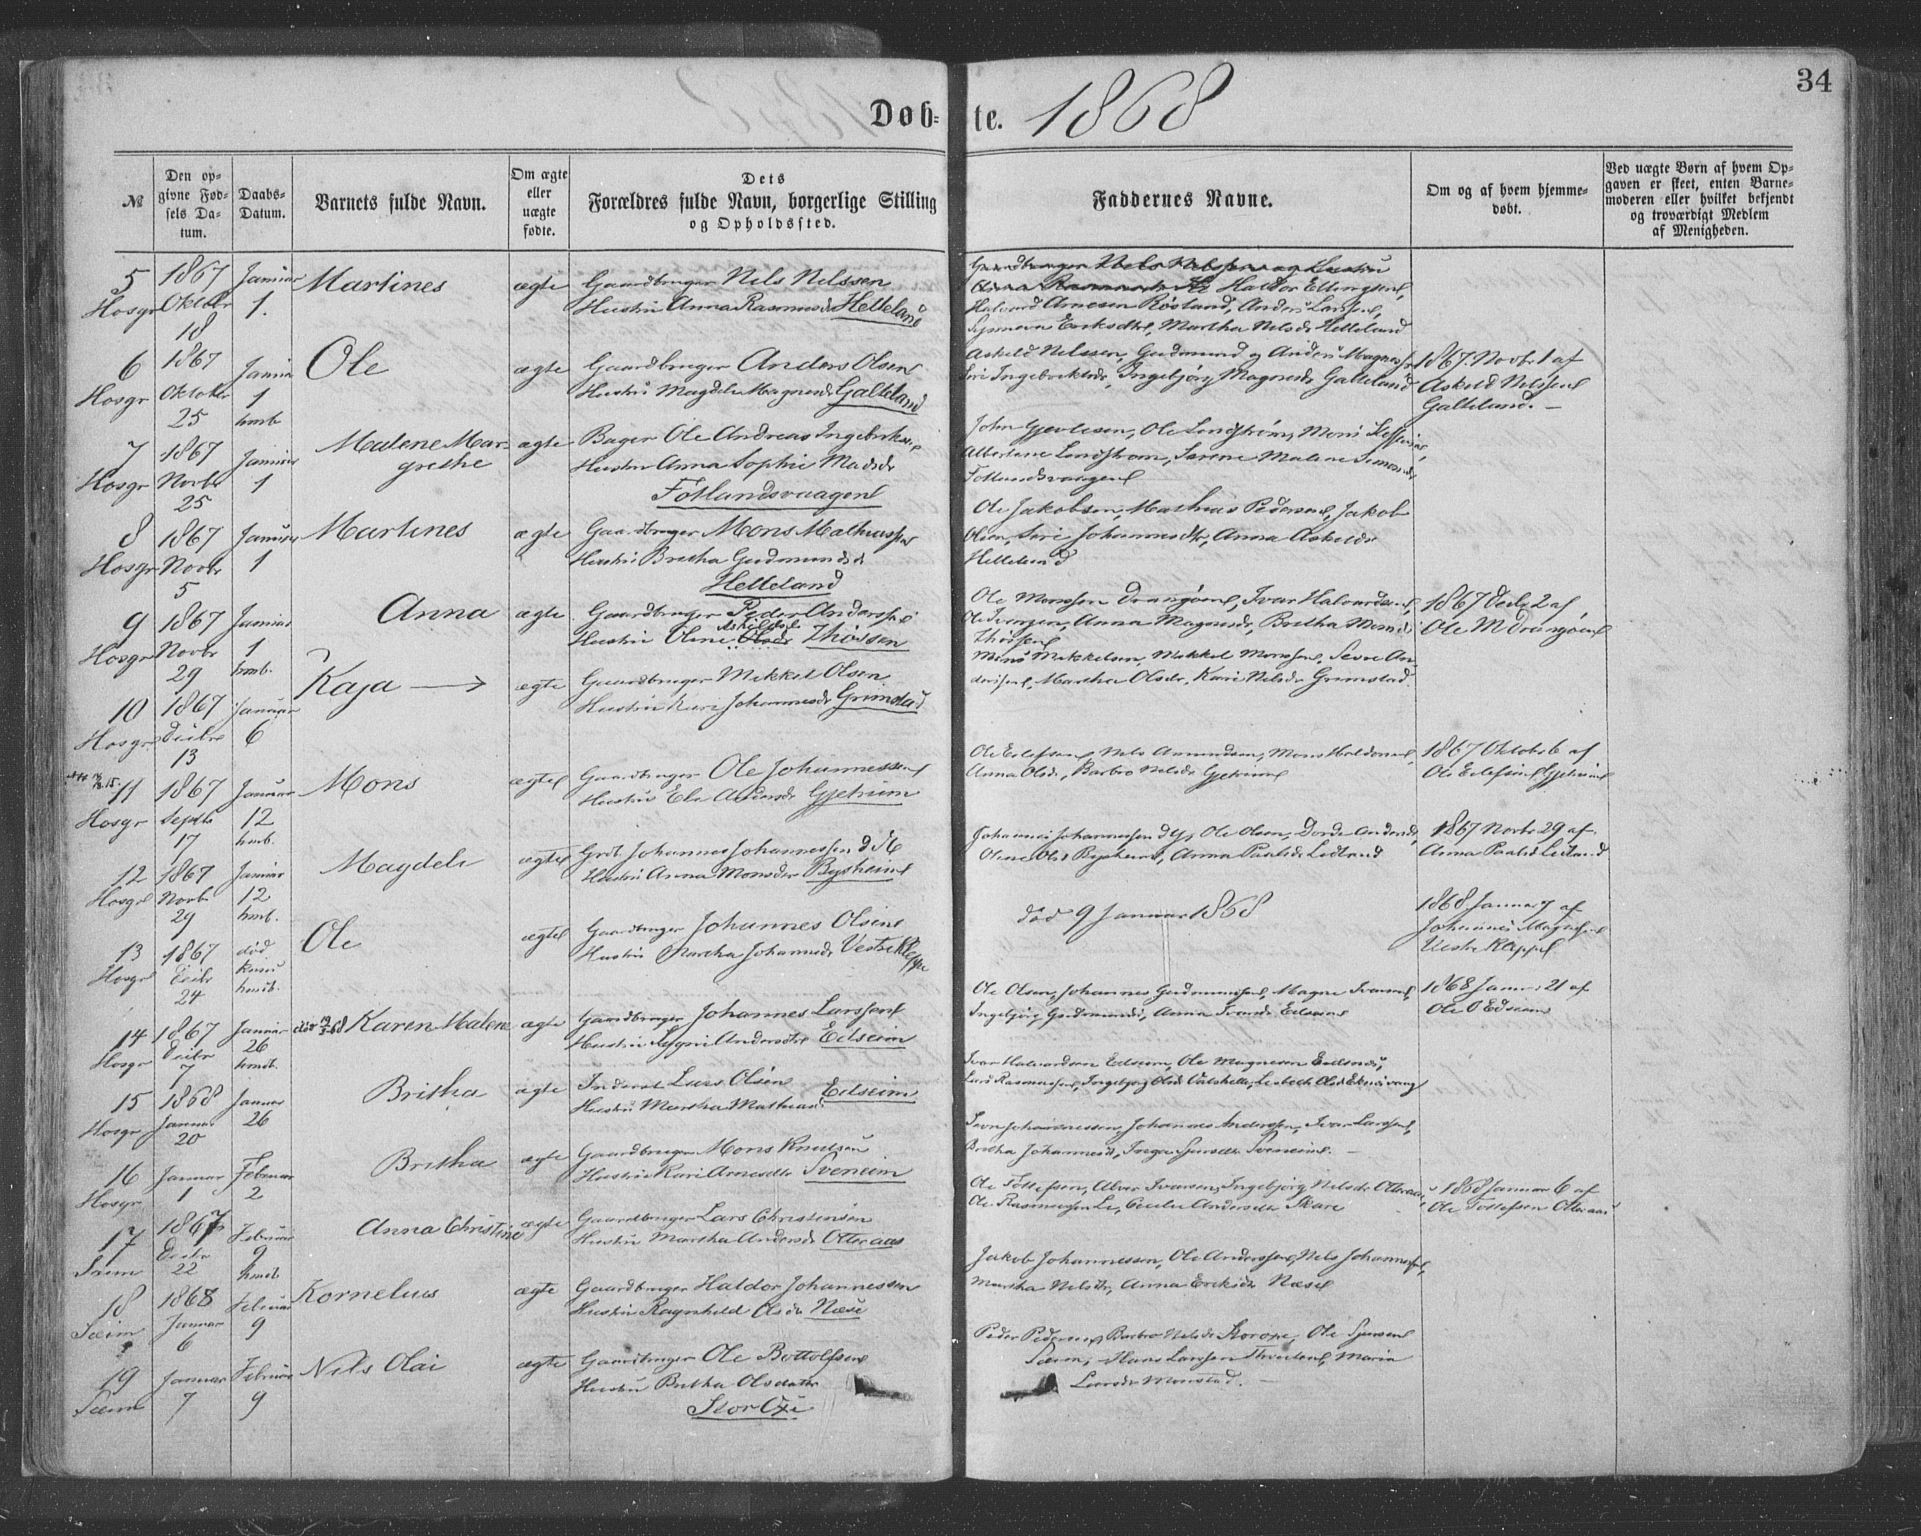 34
Døb- te. 1868
№
Den op-
givne Fød-
sels Da-
tum.
Daabs-
Datum.
Barnets fulde Navn.
Om ægte
eller
uægte
fødte.
Dets
Forældres fulde Navn, borgerlige Stilling
og Opholdssted.
Faddernes Navne.
Om og af hvem hjemme-
døbt.
Ved uægte Børn af hvem Op-
gaven er skeet, enten Barne-
moderen eller hvilket bekjendt
og troværdigt Medlem
af Menigheden.
5 Hosgr
1867 Oktober 18
Januar 1.
Martines
ægte
Gaardbruger Nels Nelssen
Hustru Anna Rasmusdr Helleland
Haldor Ellingsen,
Halvard Arnesen Røsland, Anders Larssen,
Synneva Eriksdtr, Martha Nelsdr Helleland
6 Hosgr
1867 Oktober 25
Januar 1 hmb
Ole
ægte
Gaardbruger Anders Olsen
Hustru Magdele Magnesdr Galteland
Askeld Nelssen, Gudmund og Anders Magnessen
Siri Ingebrektsdr, Ingebjørg Magnesdr Galteland
1867. Novbr 1 af
Askeld Nelssen
Galteland. —
7 Hosgr
1867 Novbr 25
Januar 1
Malene Mar-
grethe
ægte
Bager Ole Andreas Ingebrktsen
Hustru Anna Sophie Madsdr
Fotlandsvaagen
John Gjerlesen, Ole Lendstrøm, Mons
Albertine Lendstrøm, Serene Malene Simonsdr
Fotlandsvaagen
8 Hosgr
1867 Novbr 5
Januar 1
Martines
ægte
Gaardbruger Mons Mathiassen
Hustru Britha Gudmundsd
Helleland
Ole Jakobsen, Mathias Pedersen, Jakob
Olsen, Siri Johannesdtr, Anna Askeldsdr
Helleland
9 Hosgr
1867 Novbr 29
Januar 1 hmb.
Anna
ægte
Gaardbruger Peder Anderssen
Hustru Oline Askildsd Thossen
Ole Monssen Drangøen, Ivar Halvardsen,
Ole Ivarsen, Anna Magnesdr, Britha Monsd
Thossen
1867 Decbr 2 af
Ole M Drangøen
10 Hosgr
1867 Decbr 13
Januar 6
Kaja
ægte
Gaardbruger Mikkel Olsen
Hustru Kari Johannesdr Grimstad
Mons Mikkelsen, Mikkel Monssen, Sevre An-
derssen, Martha Olsdr, Kari Nelsdr Grimstad.
11 Hosgr
1867 Septb 17
Januar 12 hmb.
Mons
ægte
Gaardbruger Ole Johannessen
Hustru Eli Gjetrim
Ole Eilefsen, Nels Amundsen, Mons Haldorsen,
Anna Olsdr, Barbro Nelsdr Gjetrim
1867 Oktobr 6 af
Ole Eilefsen Gjetrim
12 Hosgr
1867 Novbr 29
Januar 12 hmb.
Magdele
ægte
Grdb Johannes Johannessen d.Æ
Hustru Anna Monsdtr Bysheim
Johannes Johannessen d.Y, Ole Olsen, Dorde Andersdr,
Oline Olsd Bysheim, Anna Paalsdr Liland
1867 Novbr 29 af
Anna Paalsd Liland
13 Hosgr
1867 Decbr 24
død hmdb.
Ole
ægte
Gaardbruger Johannes Olsen
Hustru Martha Johannesdr Vestre Kleppe
død 9 Januar 1868
1868 Januar 7 af
Johannes Magnesen
Vestre Kleppe
14 Hosgr
1867 Decbr 7
Januar 26 hmdb.
Karen Malene
ægte
Gaardbruger Johannes Larssen
Hustru Sygni Andersdtr Eidseim
Ole Olsen, Johannes Gudmundsen, Magne Ivarsen,
Ingebjørg Gudmundsd, Anna Ivarsdr Eidseim
1868 Januar 21 af
Ole O Edseim
15 Hosgr
1868 Januar 20
Januar 26
Britha
ægte
Inderst Lars Olsen Eidseim
Hustru Martha Mathiasd
Ivar Halvardsen Eidseim, Ole Magnesen
Lars Rasmussen, Ingebjørg Olsd
16 Hosgr
Januar 1
Februar 2
Britha
ægte
Gaardbruger Mons Knudsen
Hustru Kari Arnesdtr Sveneim
Johannessen, Johannes Anderssen, Ivar Larssen,
Britha Johannesd, Inga Sjursdtr Sveneim. —
17 Sæim
1867 Decbr 22
Februar 9 hmdb
Anna Christine
ægte
Gaardbruger Lars Christensen
Hustru Martha Andersd Otteraas
Ole Tollefsen, Alver Ivarsen, Ingebjørg Nelsdr Otteraas,
Ole Rasmussen Li, Cecilie Andersdtr Skare
1868 Januar 6 af
Ole Tollefsen Otteraas
18 Sæim
1868 Januar 6
Februar 9
Kornelius
ægte
Gaardbruger Haldor Johannessen
Hustru Ragnhild Olsdr Næse
Jakob Johannessen, Ole Anderssen, Nels Johannessen,
Martha Nelsdtr, Anna Eriksdr Næse
19 Sæim
Januar 7
Februar 9
Nils Olai
ægte
Gaardbruger Ole Bottolfsen
Hustru Britha Olsdatter
Stor Oxe
Peder Pedersen, Barbro Nelsdr Storoxe, Ole Sjursen
Sæim, Hans Larssen, Maria
Larsdr Monstad. —